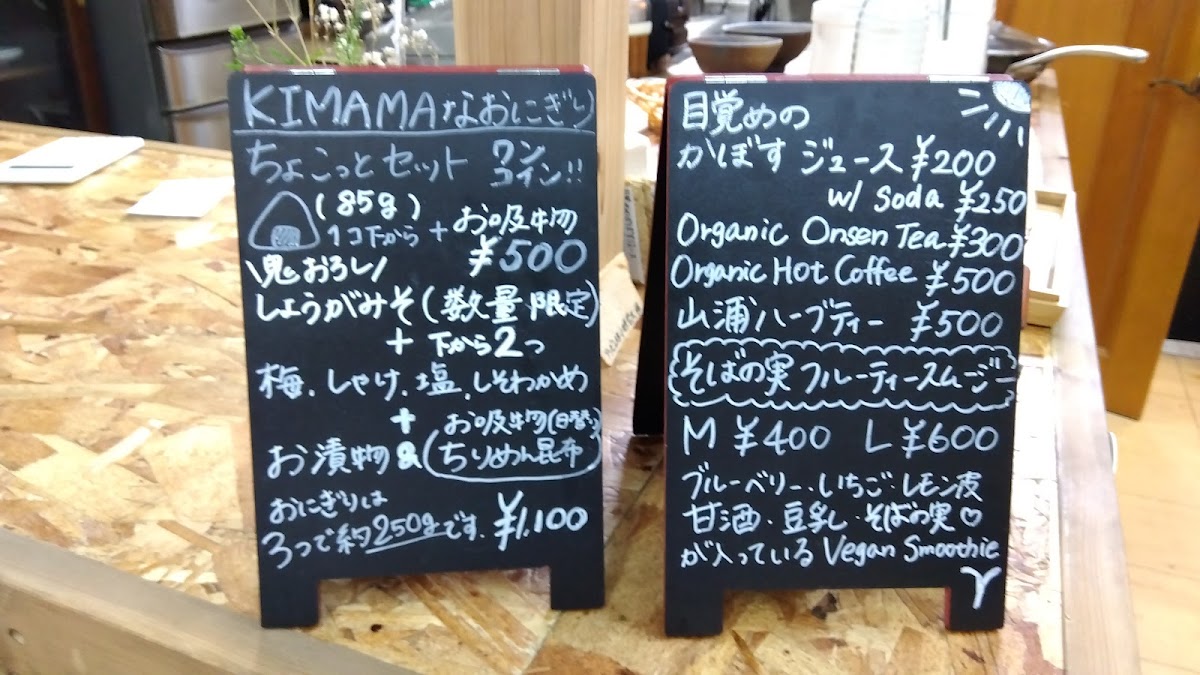 KIMAMAなおにぎり
ちょこっとセット ワンコイン!!
(85g)
1コ下から + お吸物
¥500
\鬼おろし/
しょうがみそ(数量限定)
+ 下から2つ
梅、しゃけ、塩、しそわかめ
+ お吸物(日替り)
お漬物&(ちりめん昆布)
おにぎりは
3つで約250gです. ¥1,100
目覚めの
かぼすジュース ¥200
w/ soda ¥250
Organic Onsen Tea ¥300
Organic Hot Coffee ¥500
山浦ハーブティー ¥500
そばの実フルーティースムージー
M ¥400 L ¥600
ブルーベリー・いちご・レモン皮
甘酒・豆乳・そばの実♡
が入っている Vegan Smoothie